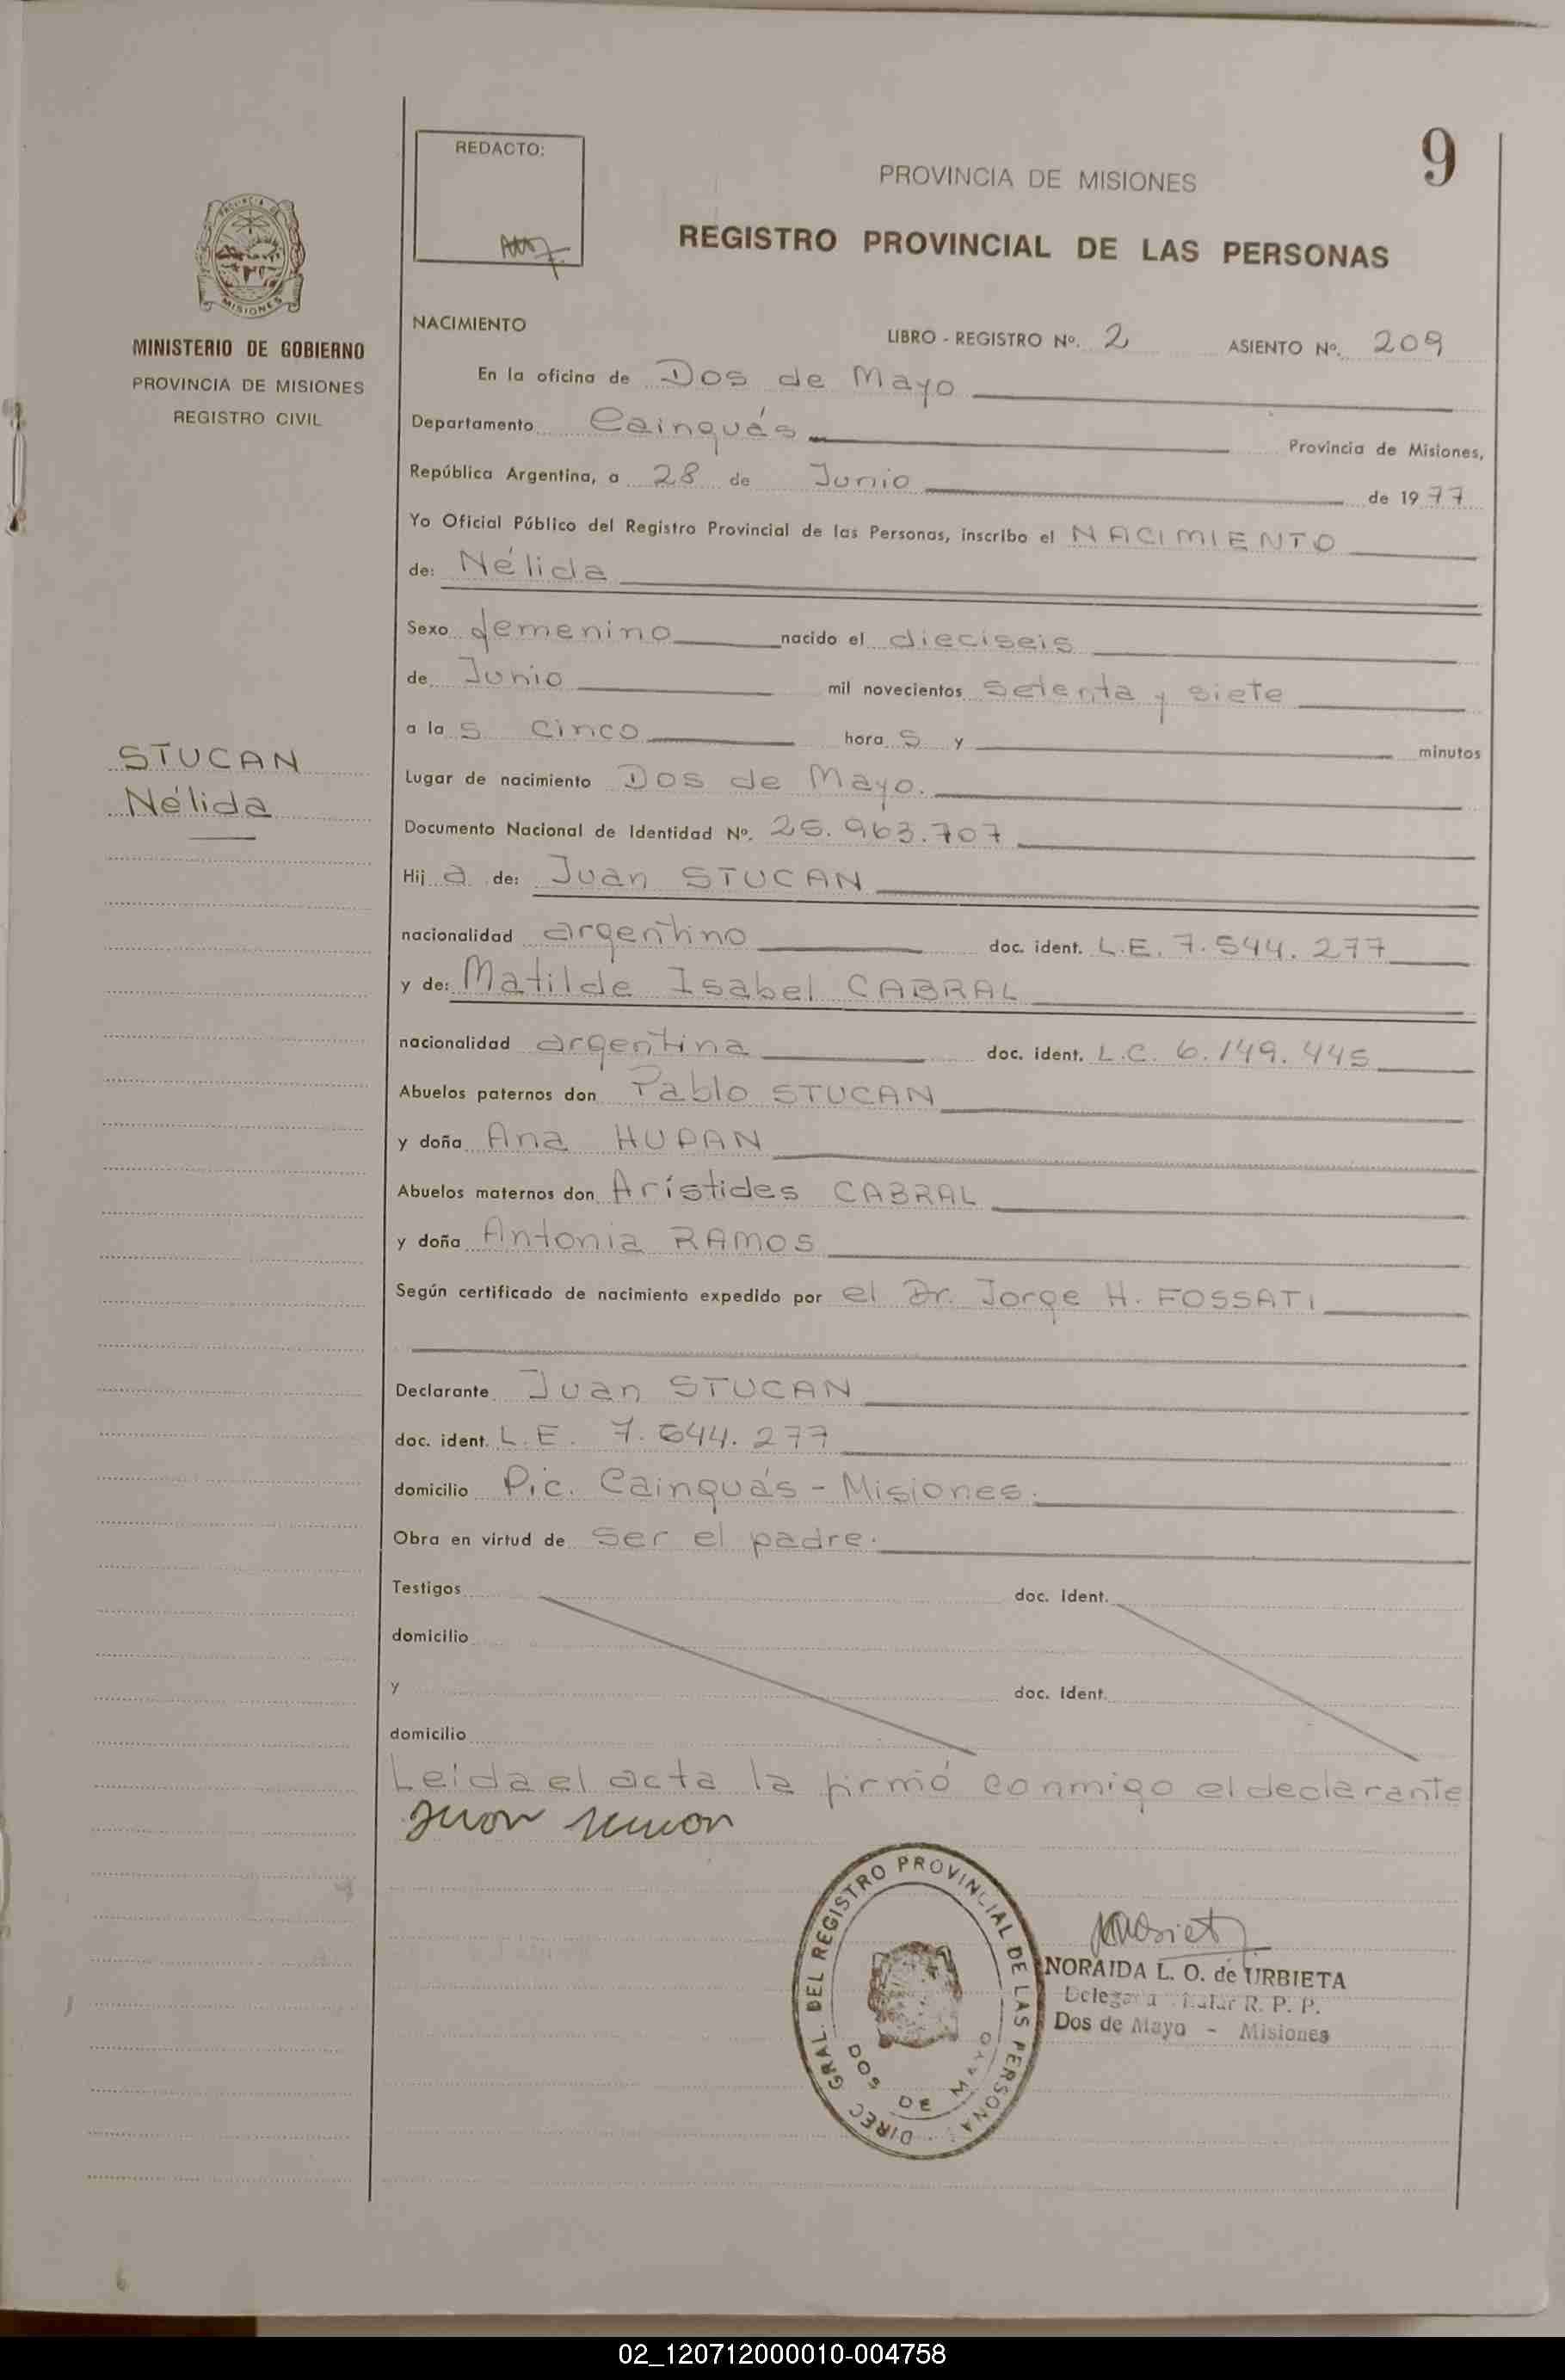 REDACTO:
9
PROVINCIA DE MISIONES
REGISTRO PROVINCIAL DE LAS PERSONAS
PROVINCIA DE
MISIONES
MINISTERIO DE GOBIERNO
PROVINCIA DE MISIONES
REGISTRO CIVIL
NACIMIENTO
LIBRO - REGISTRO Nº. 2 ASIENTO Nº. 209
En la oficina de Dos de Mayo
Departamento Cainguás Provincia de Misiones,
República Argentina, a 28 de Junio de 1977
Yo Oficial Público del Registro Provincial de las Personas, inscribo el NACIMIENTO
de: Nélida
Sexo femenino nacido el dieciseis
de Junio mil novecientos setenta y siete
a las cinco horas y minutos
STUCAN
Nélida
Lugar de nacimiento Dos de Mayo.
Documento Nacional de Identidad Nº. 25.963.707
Hija de: Juan STUCAN
nacionalidad argentino doc. ident. L.E. 7.544.277
y de: Matilde Isabel CABRAL
nacionalidad argentina doc. ident. L.C. 6.149.445
Abuelos paternos don Pablo STUCAN
y doña Ana HUPAN
Abuelos maternos don Arístides CABRAL
y doña Antonia RAMOS
Según certificado de nacimiento expedido por el Dr. Jorge H. FOSSATI
Declarante Juan STUCAN
doc. ident. L.E. 7.544.277
domicilio Pic. Cainguás - Misiones.
Obra en virtud de ser el padre.
Testigos doc. Ident.
domicilio
y doc. Ident.
domicilio
Leída el acta la firmó conmigo el declarante
Juan
DIREC GRAL. DEL REGISTRO PROVINCIAL DE LAS PERSONAS
DOS DE MAYO
NORAIDA L. O. de URBIETA
R. P. P.
Dos de Mayo - Misiones
02_120712000010-004758